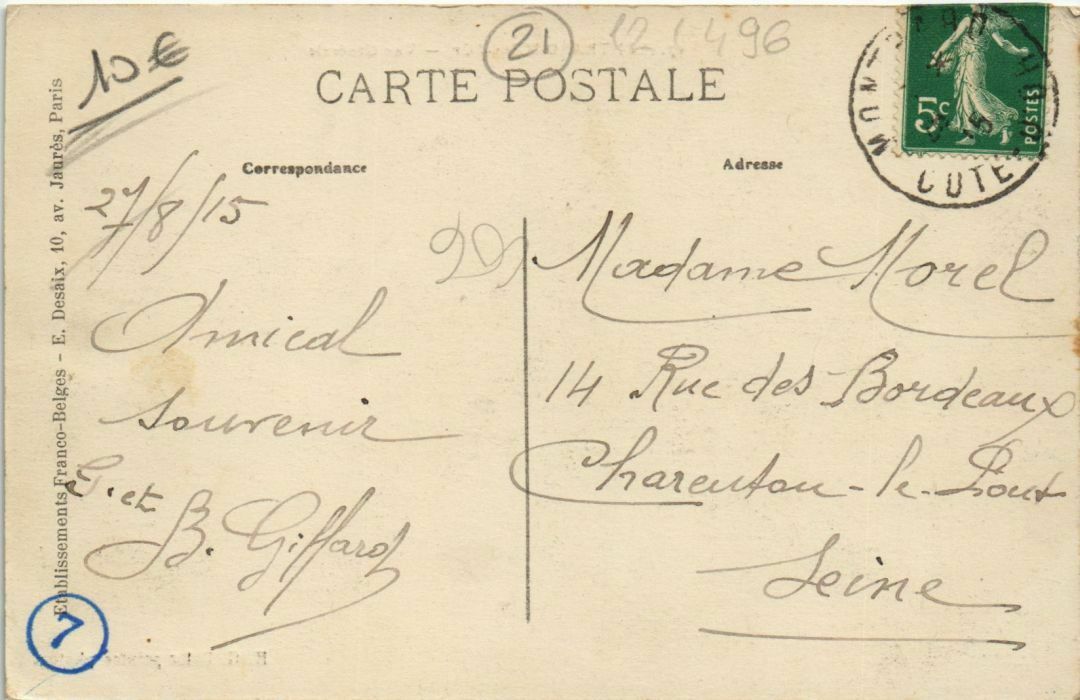 21
12 1 496
10€
CARTE POSTALE
5c
POSTES
COTE
Correspondance
Adresse
27/8/15
Amical
souvenir
G. et
B. Giffard
Madame Morel
14 Rue des Bordeaux
Charenton-le-Pont
Seine
Etablissements Franco-Belges - E. Desaix, 10, av. Jaurès, Paris
7